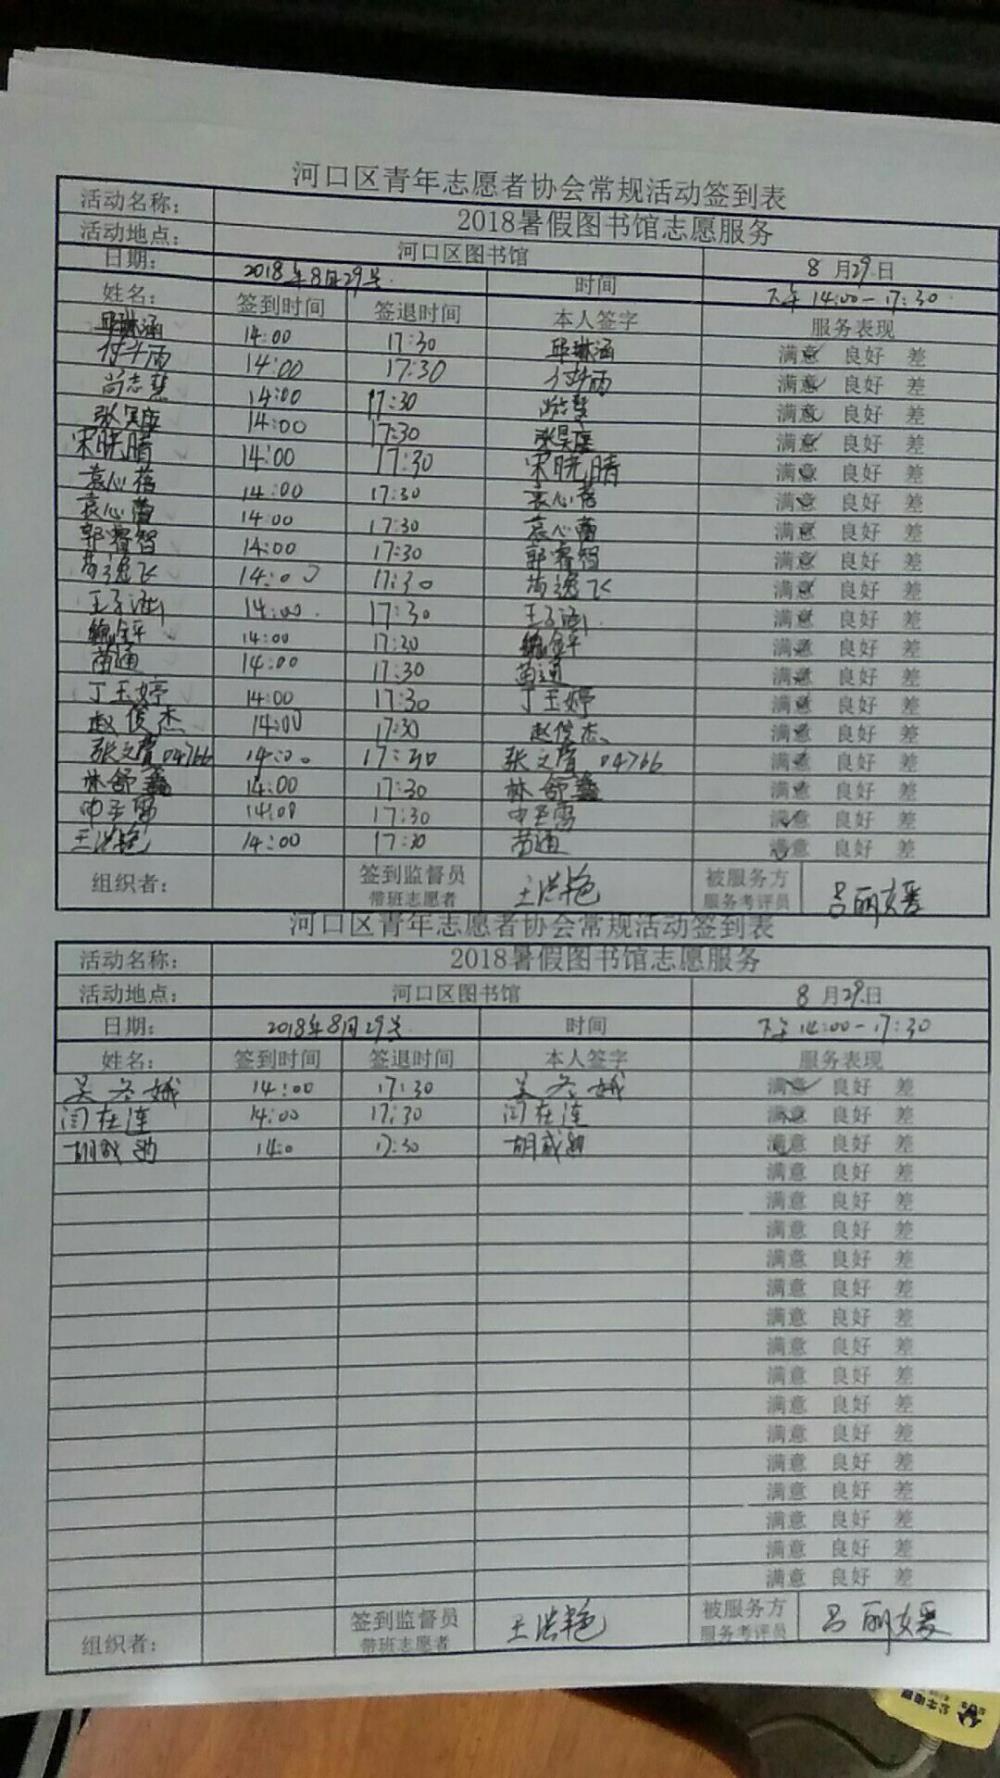 河口区青年志愿者协会常规活动签到表
活动名称: 2018暑假图书馆志愿服务
活动地点: 河口区图书馆 8 月29日
日期: 2018年8月29号 时间 下午 14:00-17:30
姓名: 签到时间 签退时间 本人签字 服务表现
邱琳涵 14:00 17:30 邱琳涵 满意 良好 差
付牛雨 14:00 17:30 满意 良好 差
尚志慧 14:00 17:30 满意 良好 差
张昊庭 14:00 17:30 张昊庭 满意 良好 差
宋晓晴 14:00 17:30 宋晓晴 满意 良好 差
袁心蓓 14:00 17:30 袁心蓓 满意 良好 差
袁心蕾 14:00 17:30 袁心蕾 满意 良好 差
郭睿智 14:00 17:30 郭睿智 满意 良好 差
苗逸飞 14:00 17:30 苗逸飞 满意 良好 差
王子涵 14:00 17:30 王子涵 满意 良好 差
14:00 17:30 满意 良好 差
苗通 14:00 17:30 苗通 满意 良好 差
丁玉婷 14:00 17:30 丁玉婷 满意 良好 差
赵俊杰 14:00 17:30 赵俊杰 满意 良好 差
张文 04766 14:00 17:30 张文 04766 满意 良好 差
林舒鑫 14:00 17:30 林舒鑫 满意 良好 差
14:00 17:30 满意 良好 差
王洪艳 14:00 17:30 苗通 满意 良好 差
组织者: 签到监督员 带班志愿者 王洪艳 被服务方 服务考评员 吕丽媛
河口区青年志愿者协会常规活动签到表
活动名称: 2018暑假图书馆志愿服务
活动地点: 河口区图书馆 8 月29日
日期: 2018年8月29号 时间 下午 14:00-17:30
姓名: 签到时间 签退时间 本人签字 服务表现
吴冬娥 14:00 17:30 吴冬娥 满意 良好 差
闫在莲 14:00 17:30 闫在莲 满意 良好 差
14:0 17:30 满意 良好 差
满意 良好 差
满意 良好 差
满意 良好 差
满意 良好 差
满意 良好 差
满意 良好 差
满意 良好 差
满意 良好 差
满意 良好 差
满意 良好 差
满意 良好 差
满意 良好 差
满意 良好 差
满意 良好 差
满意 良好 差
组织者: 签到监督员 带班志愿者 王洪艳 被服务方 服务考评员 吕丽媛